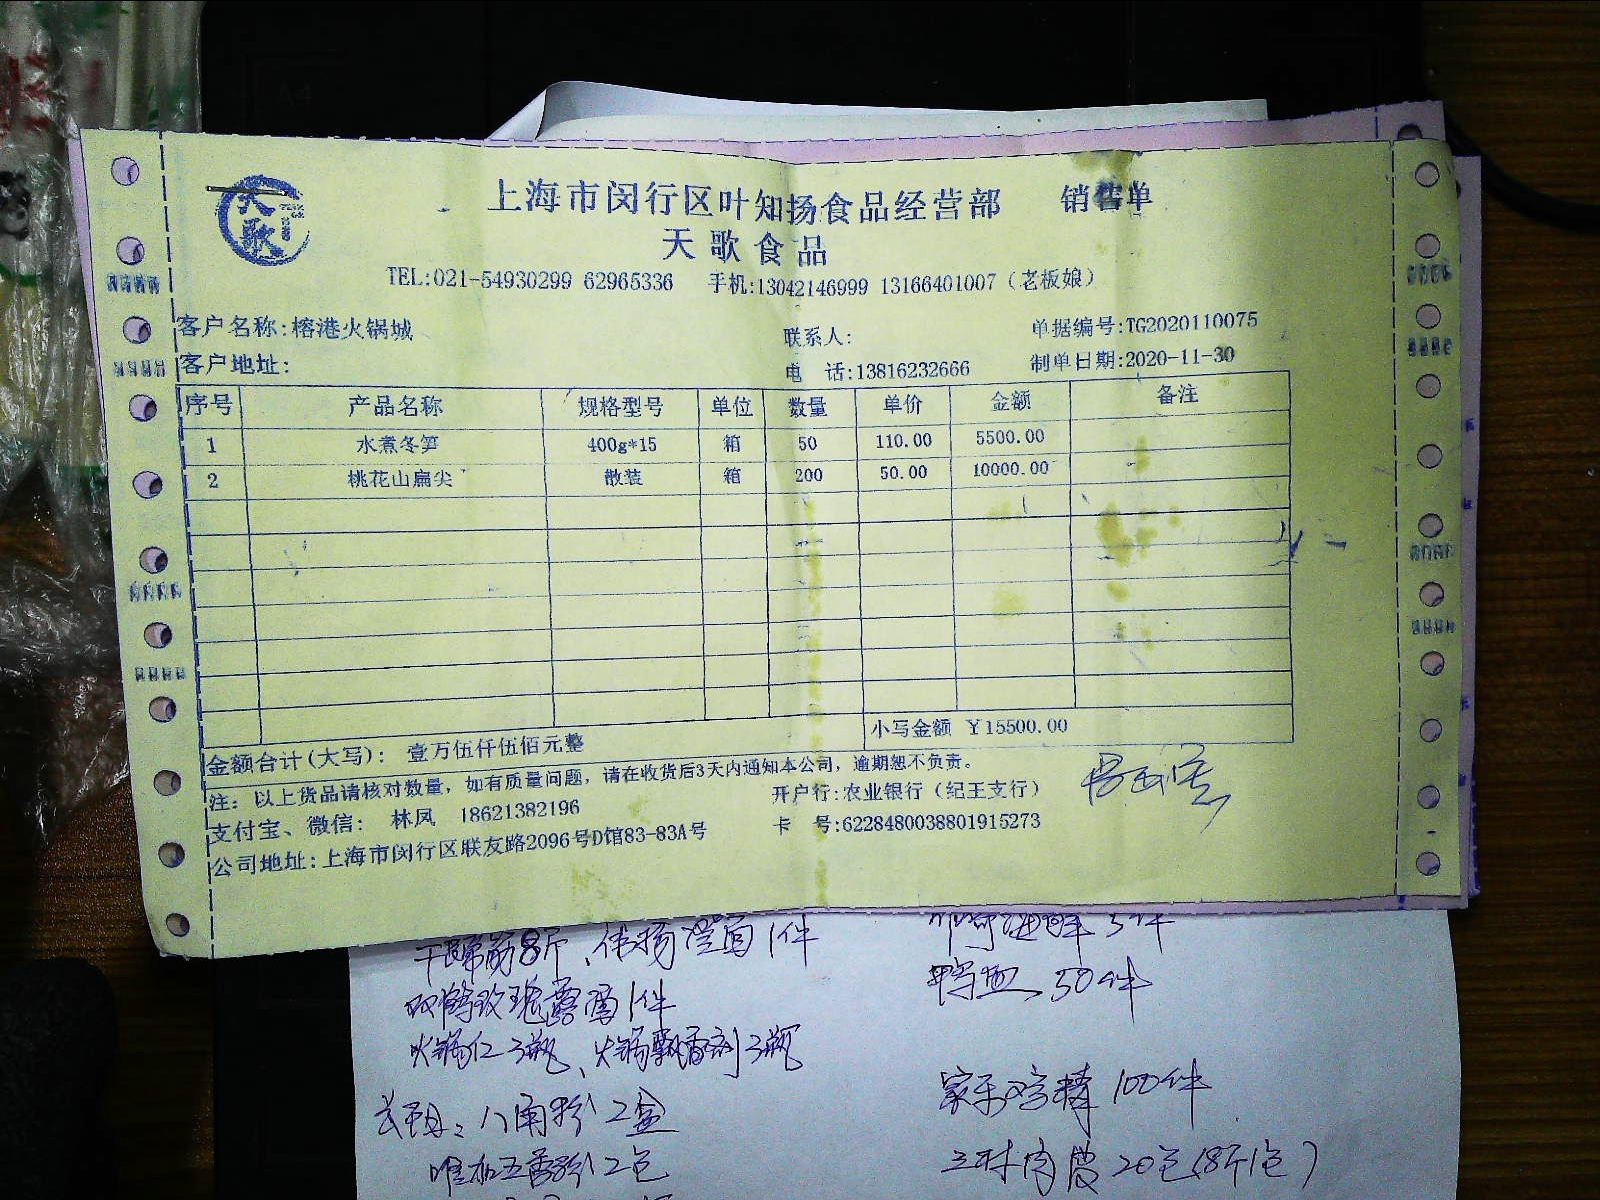 天歌
上海市闵行区叶知扬食品经营部 销售单
天歌食品
TEL:021-54930299 62965336 手机:13042146999 13166401007（老板娘）
客户名称:榕港火锅城 联系人: 单据编号:TG2020110075
客户地址: 电 话:13816232666 制单日期:2020-11-30
序号 产品名称 规格型号 单位 数量 单价 金额 备注
1 水煮冬笋 400g*15 箱 50 110.00 5500.00
2 桃花山扁尖 散装 箱 200 50.00 10000.00
金额合计(大写): 壹万伍仟伍佰元整 小写金额 ￥15500.00
注: 以上货品请核对数量，如有质量问题，请在收货后3天内通知本公司，逾期恕不负责。
支付宝、微信: 林凤 18621382196 开户行:农业银行（纪王支行）
公司地址:上海市闵行区联友路2096号D馆83-83A号 卡 号:6228480038801915273
干蹄筋8斤、伟扬澄面1件
鸭血 50件
双鹤玫瑰露酒1件
火锅仁3瓶、火锅飘香剂3瓶
家乐鸡精 100件
八角粉 2盒
味加五香粉 2包
20包(8斤1包)